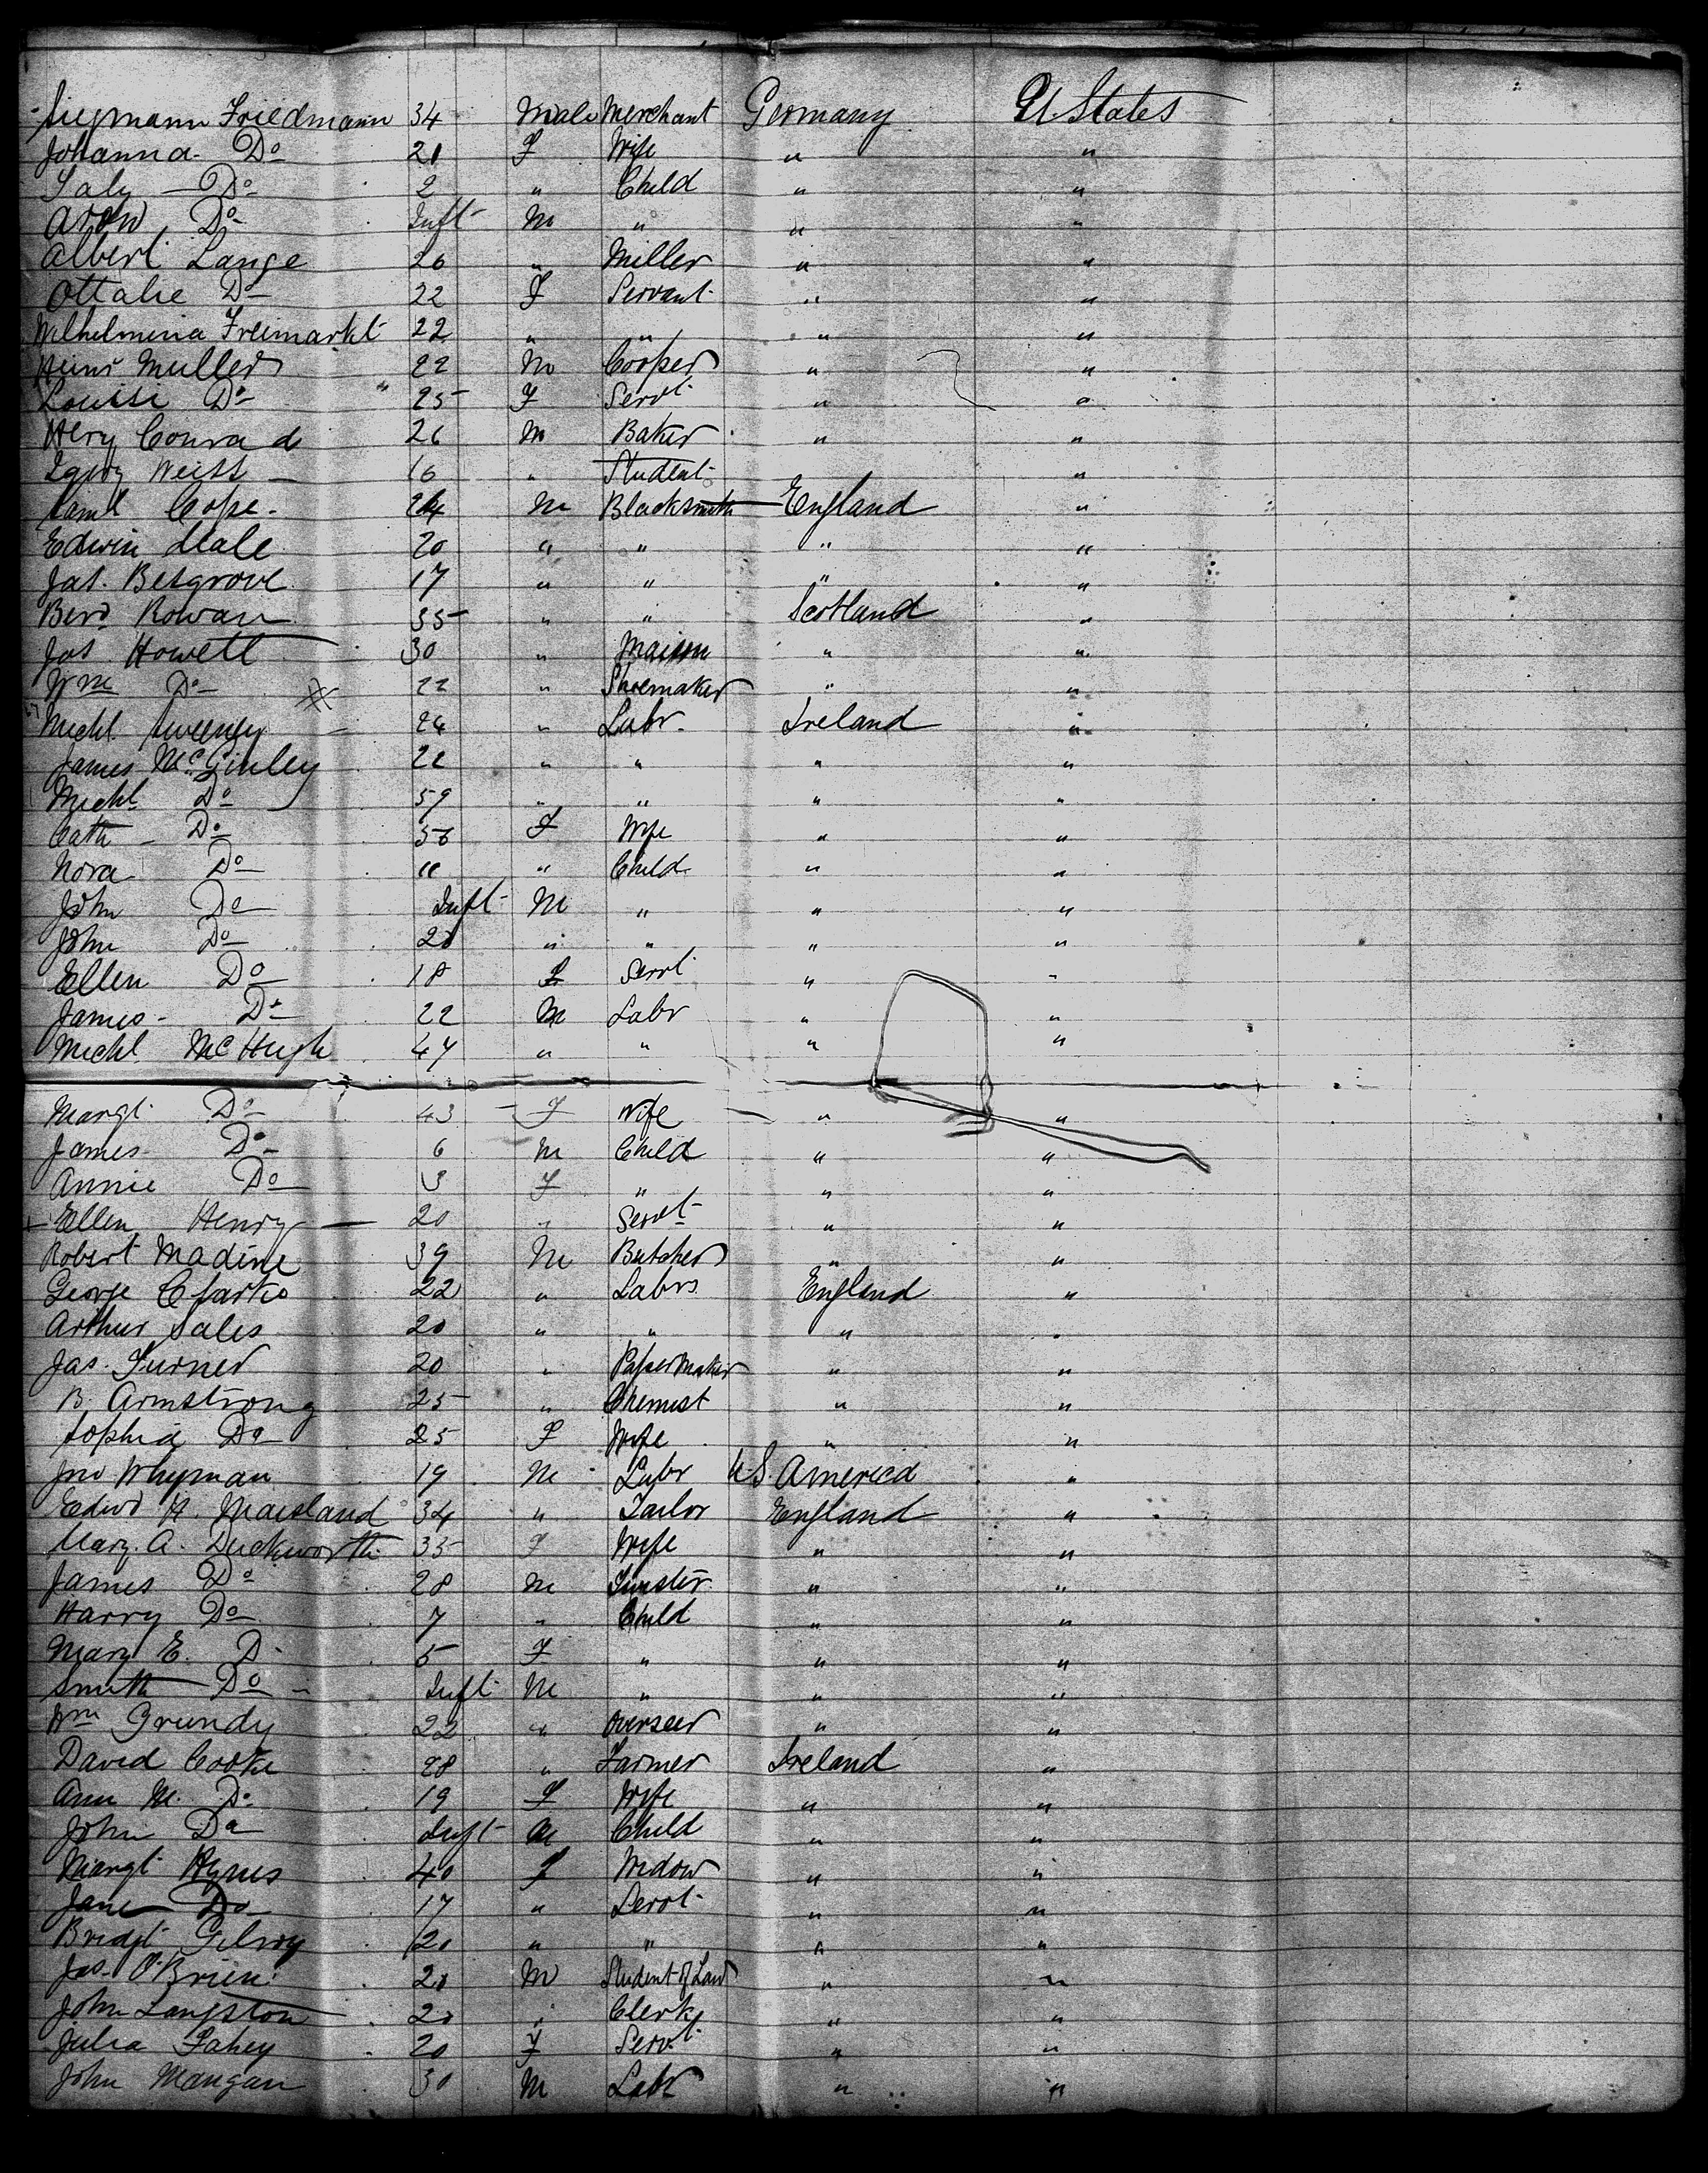 Siegmann Friedmann 34 Male Merchant Germany U. States
Johanna Do 21 F Wife " "
Saly Do 2 " Child " "
Aron Do Inft M " " "
Albert Lange 26 " Miller " "
Ottalie Do 22 F Servant " "
Wilhelmina Freimarkt 22 " " " "
Muller 22 M Cooper " "
Louisi Do 25 F Servt " "
Hery Conrad 26 M Baker " "
Weiss 16 " Student "
Saml Cope 24 M Blacksmith England "
Edwin Hale 20 " " " "
Jas. Belgrove 17 " " " "
Rowan 35 " " Scotland "
Jas Howell 30 " " "
Wm Do 22 " Shoemaker " "
Michl Sweeney 24 " Labr. Ireland "
James McGinley 22 " " " "
Michl Do 59 " " " "
Cath Do 56 F Wife " "
Nora Do 11 " Child " "
John Do Inft M " " "
John Do 20 " " " "
Ellen Do 18 F Servt " "
James Do 22 M Labr " "
Michl McHugh 47 " " " "
Margt Do 43 F Wife " "
James Do 6 M Child " "
Annie Do 3 F " " "
Ellen Henry 20 " Servt " "
Robert Madine 39 M Butcher " "
George Clarke 22 " Labr England "
Arthur Sales 20 " " " "
Jas. Turner 20 " Paper Maker " "
B. Armstrong 25 " Chemist " "
Sophia Do 25 F Wife " "
Jno Whyman 19 M Labr U.S. America "
Edwd H. Marsland 34 " Tailor England "
Mary. A. Duckworth 35 F Wife " "
James Do 28 M " "
Harry Do 7 " Child " "
Mary E. D 5 F " " "
Smith Do Inft M " " "
Wm Grundy 22 " Overseer " "
David Cooke 28 " Farmer Ireland "
Ann M. Do 19 F Wife " "
John Do Inft M Child " "
Margt Hynes 40 F Widow " "
Jane Do 17 " Servt " "
Bridgt Gilroy 20 " " " "
Jas. O'Brien 20 M Student of Law " "
John Langston 20 " Clerk " "
Julia Fahey 20 F Servt " "
John Mangan 30 M Labr " "